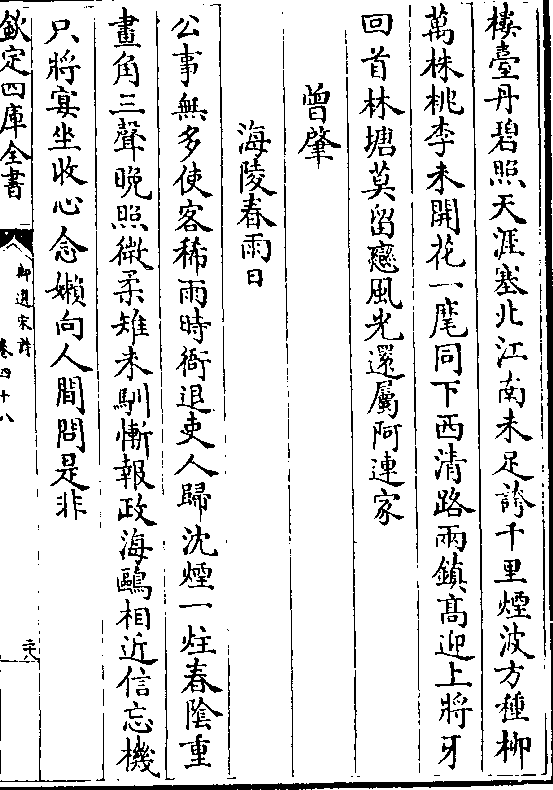 樓臺丹碧照天涯塞北江南未足誇千里煙波方種柳
萬株桃李未開花一麾同下西清路兩鎮髙迎上將牙
回首林塘莫留戀風光還屬阿連家
曾肇
海陵春雨日
公事無多使客稀雨時衙退吏人歸沈煙一炷春陰重
畫角三聲晚照微柔雉未馴慚報政海鷗相近信忘機
只將宴坐收心念嬾向人間問是非
欽定四庫全書
御選宋詩
卷四十八